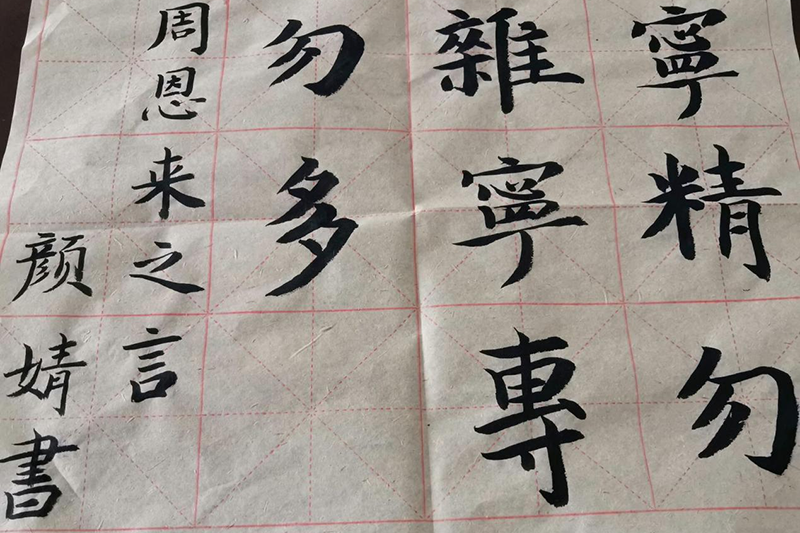 寧精勿
雜寧專
勿多
周恩来之言
顔婧書